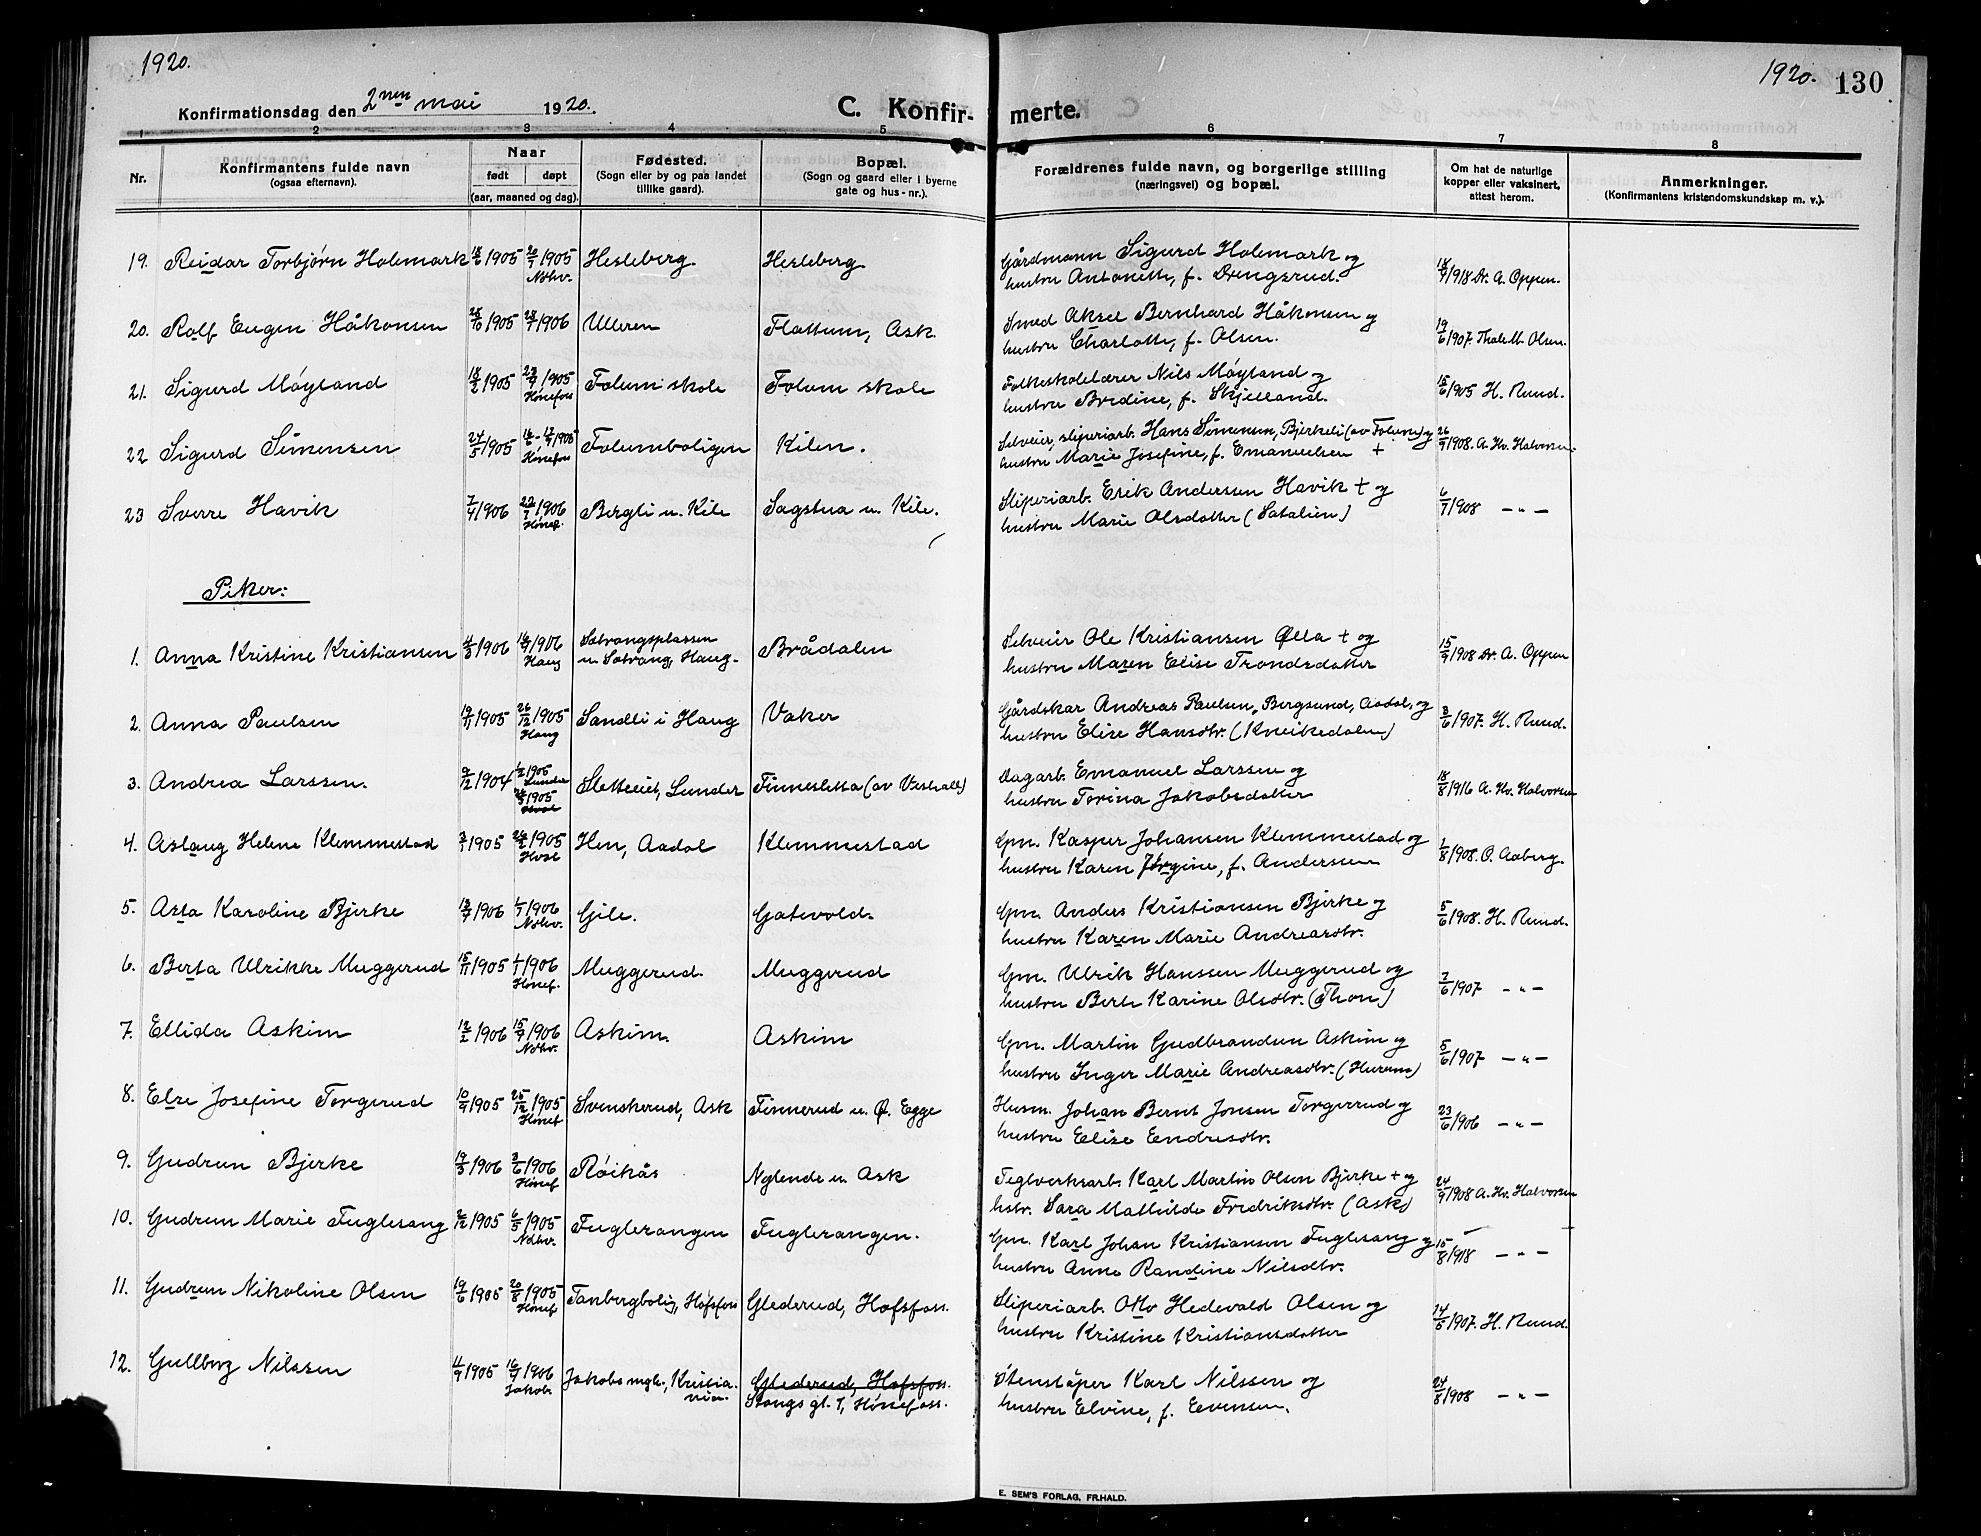 1920.
1920. 130
Konfirmationsdag den 2nen mai 1920.
C. Konfir- merte.
1 2 3 4 5 6 7 8
Nr.
Konfirmantens fulde navn
(ogsaa efternavn).
Naar
født døpt
(aar, maaned og dag).
Fødested.
(Sogn eller by og paa landet
tillike gaard).
Bopæl.
(Sogn og gaard eller i byerne
gate og hus-nr.).
Forældrenes fulde navn, og borgerlige stilling
(næringsvei) og bopæl.
Om hat de naturlige
kopper eller vaksinert,
attest herom.
Anmerkninger.
(Konfirmantens kristendomskundskap m. v.).
19. Reidar Torbjørn Holemark 18/6 1905 1905 Nohv. Hesleberg. Hesleberg.
Gårdmann Sigurd Holemark og
hustru Antonette, f. Drengsrud.
18/9 1918 Dr. A. Oppen.
20. Rolf Eugen Håkonsen 28/10 1905 1906 Ulleren Flattum, Ask.
Smed Aksel Bernhard Håkonsen og
hustru Charlotte, f. Olsen.
19/6 1907. Thale M. Olsen.
21. Sigurd Møyland 18/2 1905 1905 Hønefoss Folum skole Folum skole
Folkeskolelærer Nils Møyland og
hustru Bredine, f. Skjelland.
15/6 1905 H. Ruud.
22 Sigurd Simensen 24/5 1905 1905 Hønefoss Folumboligen Kilen.
Selveier, sliperiarb. Hans Simensen, Bjerkeli (av Folum) og
hustru Marie Josefine, f. Emanuelsen +
26/9 1908. A. Hv. Halvorsen.
23 Sverre Havik 7/4 1906 22/7 1906 Hønef. Bergli u. Kile Sagstua u. Kile.
Sliperiarb. Erik Andersen Havik + og
hustru Marie Olsdatter (Satalien)
6/7 1908 — „ —
Piker:
1. Anna Kristine Kristiansen 4/3 1906 16/4 1906 Haug Sætrangsplassen
u. Sætrang, Haug. Brådalen
Selveier Ole Kristiansen Ølla + og
hustru Maren Elise Trondsdatter
15/9 1908 Dr. A. Oppen
2. Anna Paulsen 19/11 1905 26/12 1905 Haug Sandli i Haug Vaker
Gårdskar Andreas Paulsen, Bergsund, Aadal, og
hustru Elise Hansdtr. (Kneikedalen)
3/6 1907. H. Ruud.
3. Andrea Larssen. 9/12 1904 1/2 1905 Lunder 1905 Hval Sletteeiet, Lunder Finnesletta (av Veshall)
Dagarb. Emanuel Larssen og
hustru Torina Jakobsdatter
18/8 1916 A. Hv. Halvorsen
4. Aslaug Helene Klemmestad 3/1 1905 26/2 1905 Hval Hen, Aadal Klemmestad
Gm. Kasper Johansen Klemmestad og
hustru Karen Jørgine, f. Andersen
1/8 1908. O. Aaberg.
5. Asta Karoline Bjerke 13/4 1906 1/7 1906 Nohv. Gile. Gatevold.
Gm. Anders Kristiansen Bjerke og
hustru Karen Marie Andreasdtr.
5/6 1908. H. Ruud.
6. Berta Ulrikke Muggerud 15/11 1905 1/1 1906 Hønef. Muggerud. Muggerud
Gm. Ulrik Hanssen Muggerud og
hustru Berte Karine Olsdtr. (Thon)
7/6 1907 — „ —
7. Ellida Askim 12/2 1906 15/4 1906 Nohv. Askim. Askim
Gm. Martin Gudbrandsen Askim og
hustru Inger Marie Andreasdtr. (Hurum)
5/6 1907 — „ —
8. Else Josefine Torgerud 10/9 1905 25/12 1905 Hønef Svenskerud, Ask Finnerud u. Ø. Egge
Husm. Johan Bernt Jonsen Torgerrud og
hustru Elise Endresdtr.
23/6 1906 — „ —
9. Gudrun Bjerke 19/3 1906 3/6 1906 Hønef Røikås Nylende u. Ask
Teglverksarb. Karl Martin Olsen Bjerke + og
hstr. Sara Mathilde Fredriksdtr. (Ask)
24/9 1908 A. Hv. Halvorsen
10. Gudrun Marie Fuglesang 2/12 1905 6/5 1905 Nohv. Fuglerangen Fuglerangen.
Gm. Karl Johan Kristiansen Fuglesang og
hustru Anne Randine Nilsdtr.
15/8 1918 — „ —
11. Gudrun Nikoline Olsen 19/6 1905 20/8 1905 Hønef Tanbergbolig, Hofsfoss Glederud, Hofsfoss.
Sliperiarb. Otto Hedevald Olsen og
hustru Kristine Kristiansdatter
14/5 1907. H. Ruud.
12. Gullborg Nilssen 4/9 1905 16/4 1906 Jakob. Jakobs mgh., Kristia-
nia. Glederud, Hofsfoss.
Stangs gt. 1, Hønefoss.
Ovnstøper Karl Nilssen og
hustru Elvine, f. Evensen.
24/8 1908 — „ —
E. SEM'S FORLAG, FR.HALD.